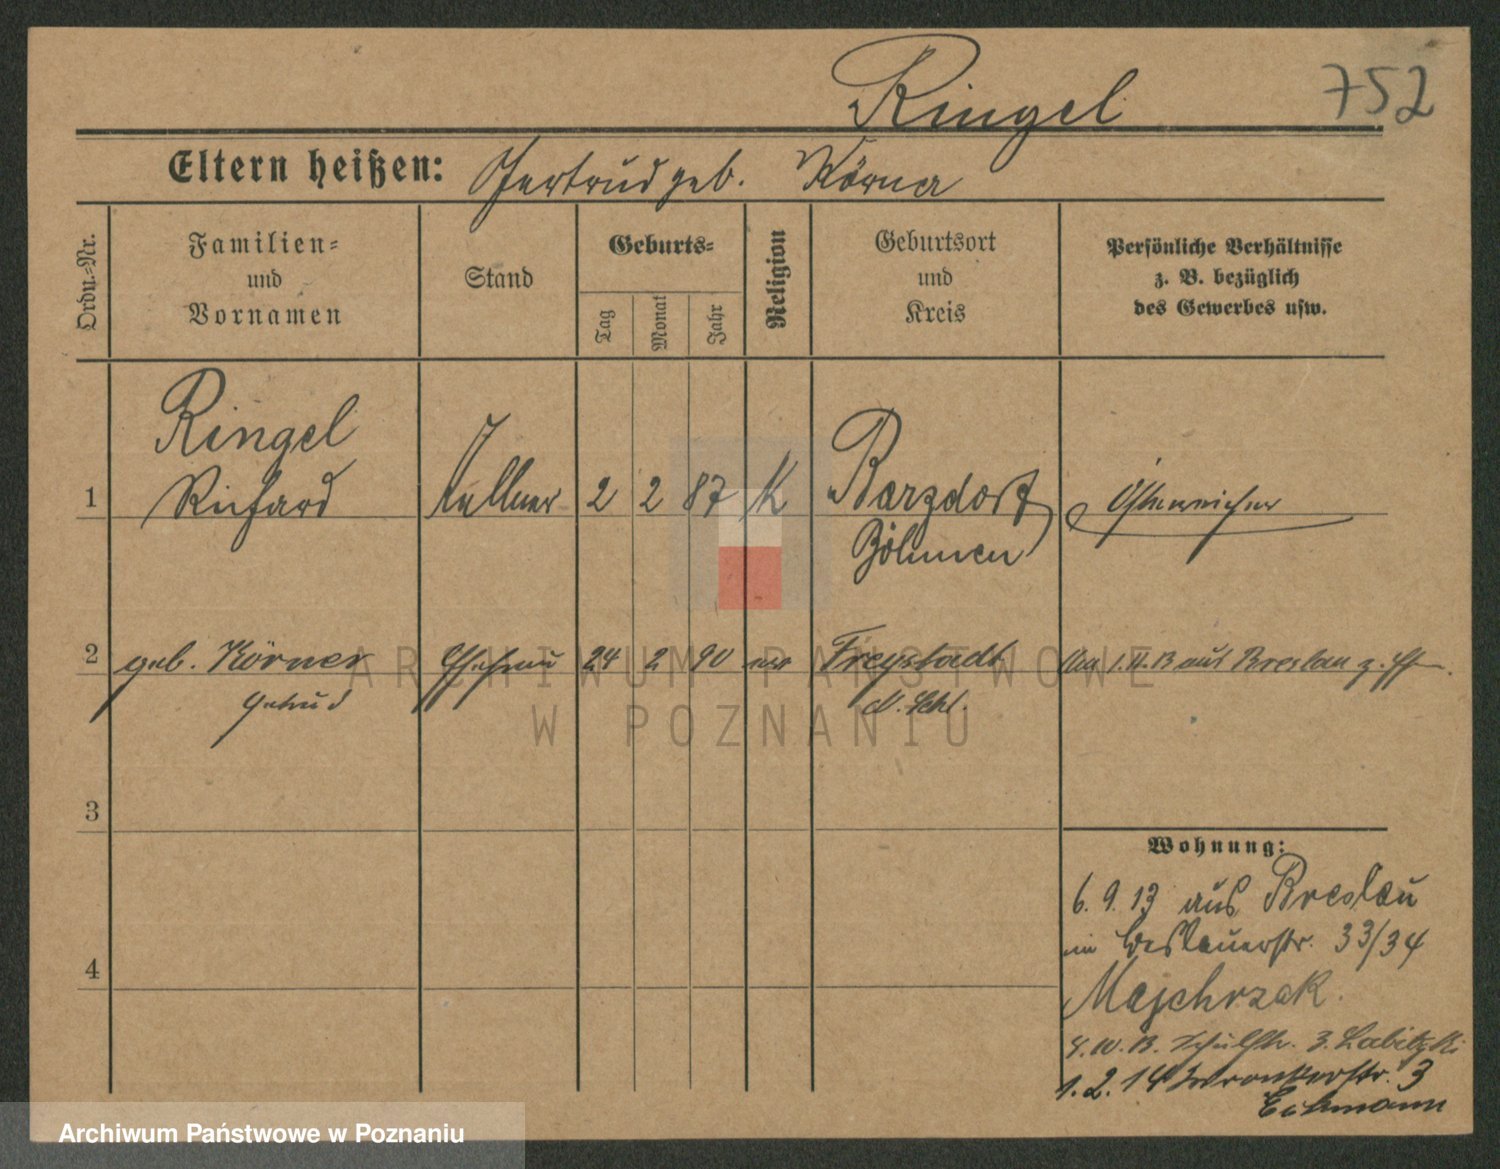 Ringel 752
Eltern heißen: Gertrud geb. Körner
Ordn.=Nr.
Familien=
und
Vornamen
Stand
Geburts=
Tag
Monat
Jahr
Religion
Geburtsort
und
Kreis
Persönliche Verhältnisse
z. B. bezüglich
des Gewerbes usw.
Ringel
1 Richard Kellner 2 2 87 K Barzdorf Österreicher
Böhmen
2 geb. Körner Ehefrau 24 2 90 Freystadt aus Breslau
Gertrud N. Schl.
3
Wohnung:
6. 9. 13 aus Breslau
Breslauerstr. 33/34
4
Majchrzak.
Schulstr. 3. Labitzki
1. 2. 14 Wronkerstr. 3
Eichmann
ARCHIWUM PAŃSTWOWE
W POZNANIU
Archiwum Państwowe w Poznaniu